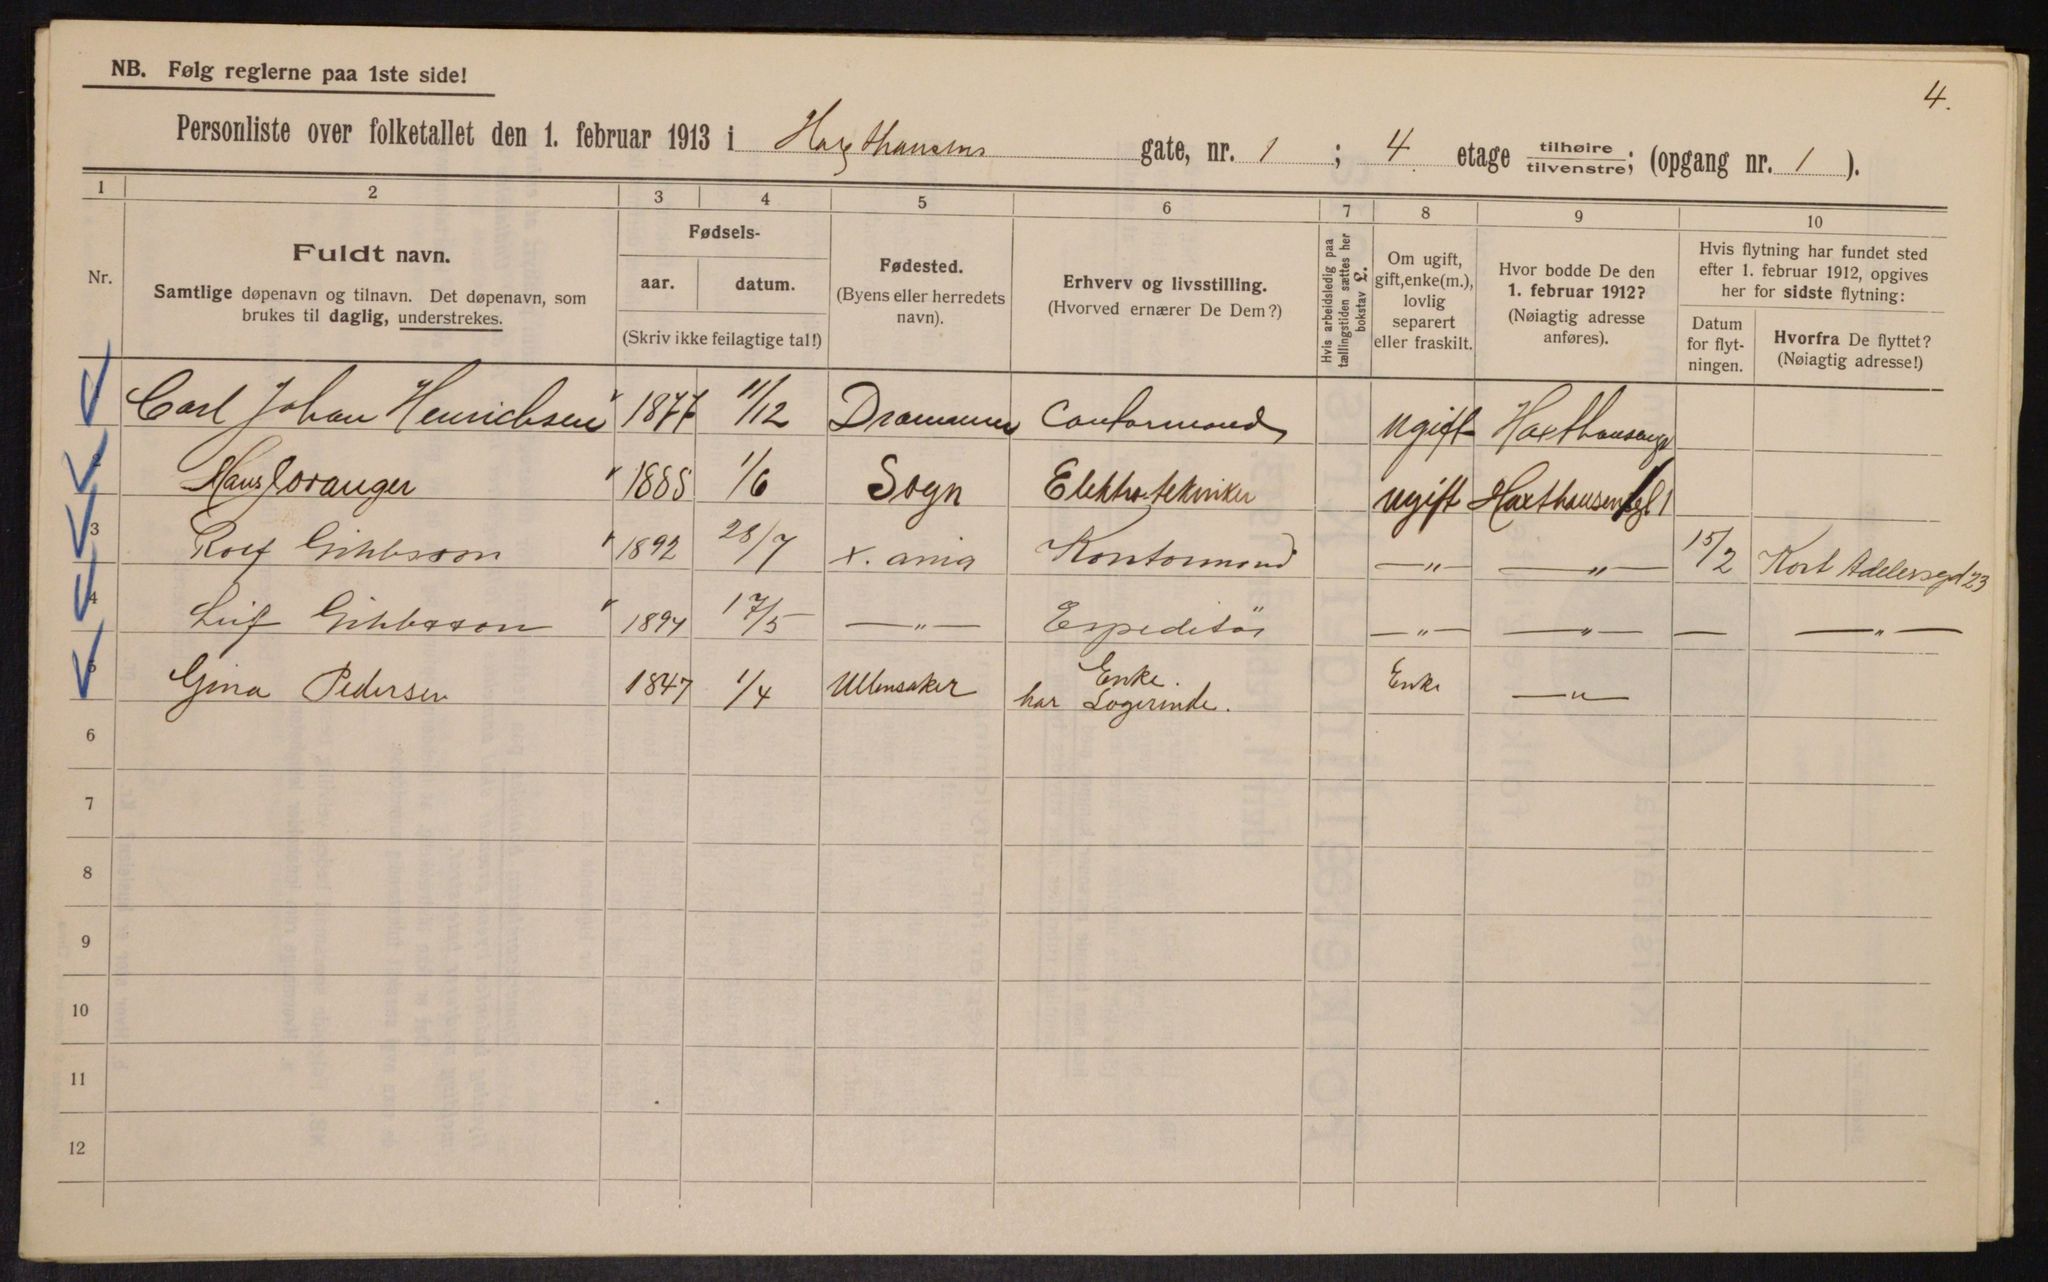 4.
NB. Følg reglerne paa 1ste side!
Personliste over folketallet den 1. februar 1913 i Haxthausens gate, nr. 1 ; 4. etage tilhøire tilvenstre; (opgang nr. 1 ).
1 2 3 4 5 6 7 8 9 10
Nr.
Fuldt navn.
Samtlige døpenavn og tilnavn. Det døpenavn, som
brukes til daglig, understrekes.
Fødsels-
aar. datum.
(Skriv ikke feilagtige tal!)
Fødested.
(Byens eller herredets
navn).
Erhverv og livsstilling.
(Hvorved ernærer De Dem?)
Hvis arbeidsledig paa
tællingstiden sættes her
bokstav £.
Om ugift,
gift, enke(m.),
lovlig
separert
eller fraskilt.
Hvor bodde De den
1. februar 1912?
(Nøiagtig adresse
anføres).
Hvis flytning har fundet sted
efter 1. februar 1912, opgives
her for sidste flytning:
Datum
for flyt-
ningen.
Hvorfra De flyttet?
(Nøiagtig adresse!)
Carl Johan Henrichsen 1877 11/12 Drammen Contormand ugift Haxthausensgt
2 Hans Loranger 1888 1/6 Sogn Elektrotekniker ugift Haxthausensgt 1
3 Rolf Gihbsson 1892 28/7 X.ania Kontormand —„— —„— 15/2 Kort Adelersgd 23
4 Leif Gihbsson 1894 17/5 —„— Expeditør —„— —„— — —„—
5 Gina Pedersen 1847 1/4 Ullensaker Enke. har Logerinde. Enke —„—
6
7
8
9
10
11
12